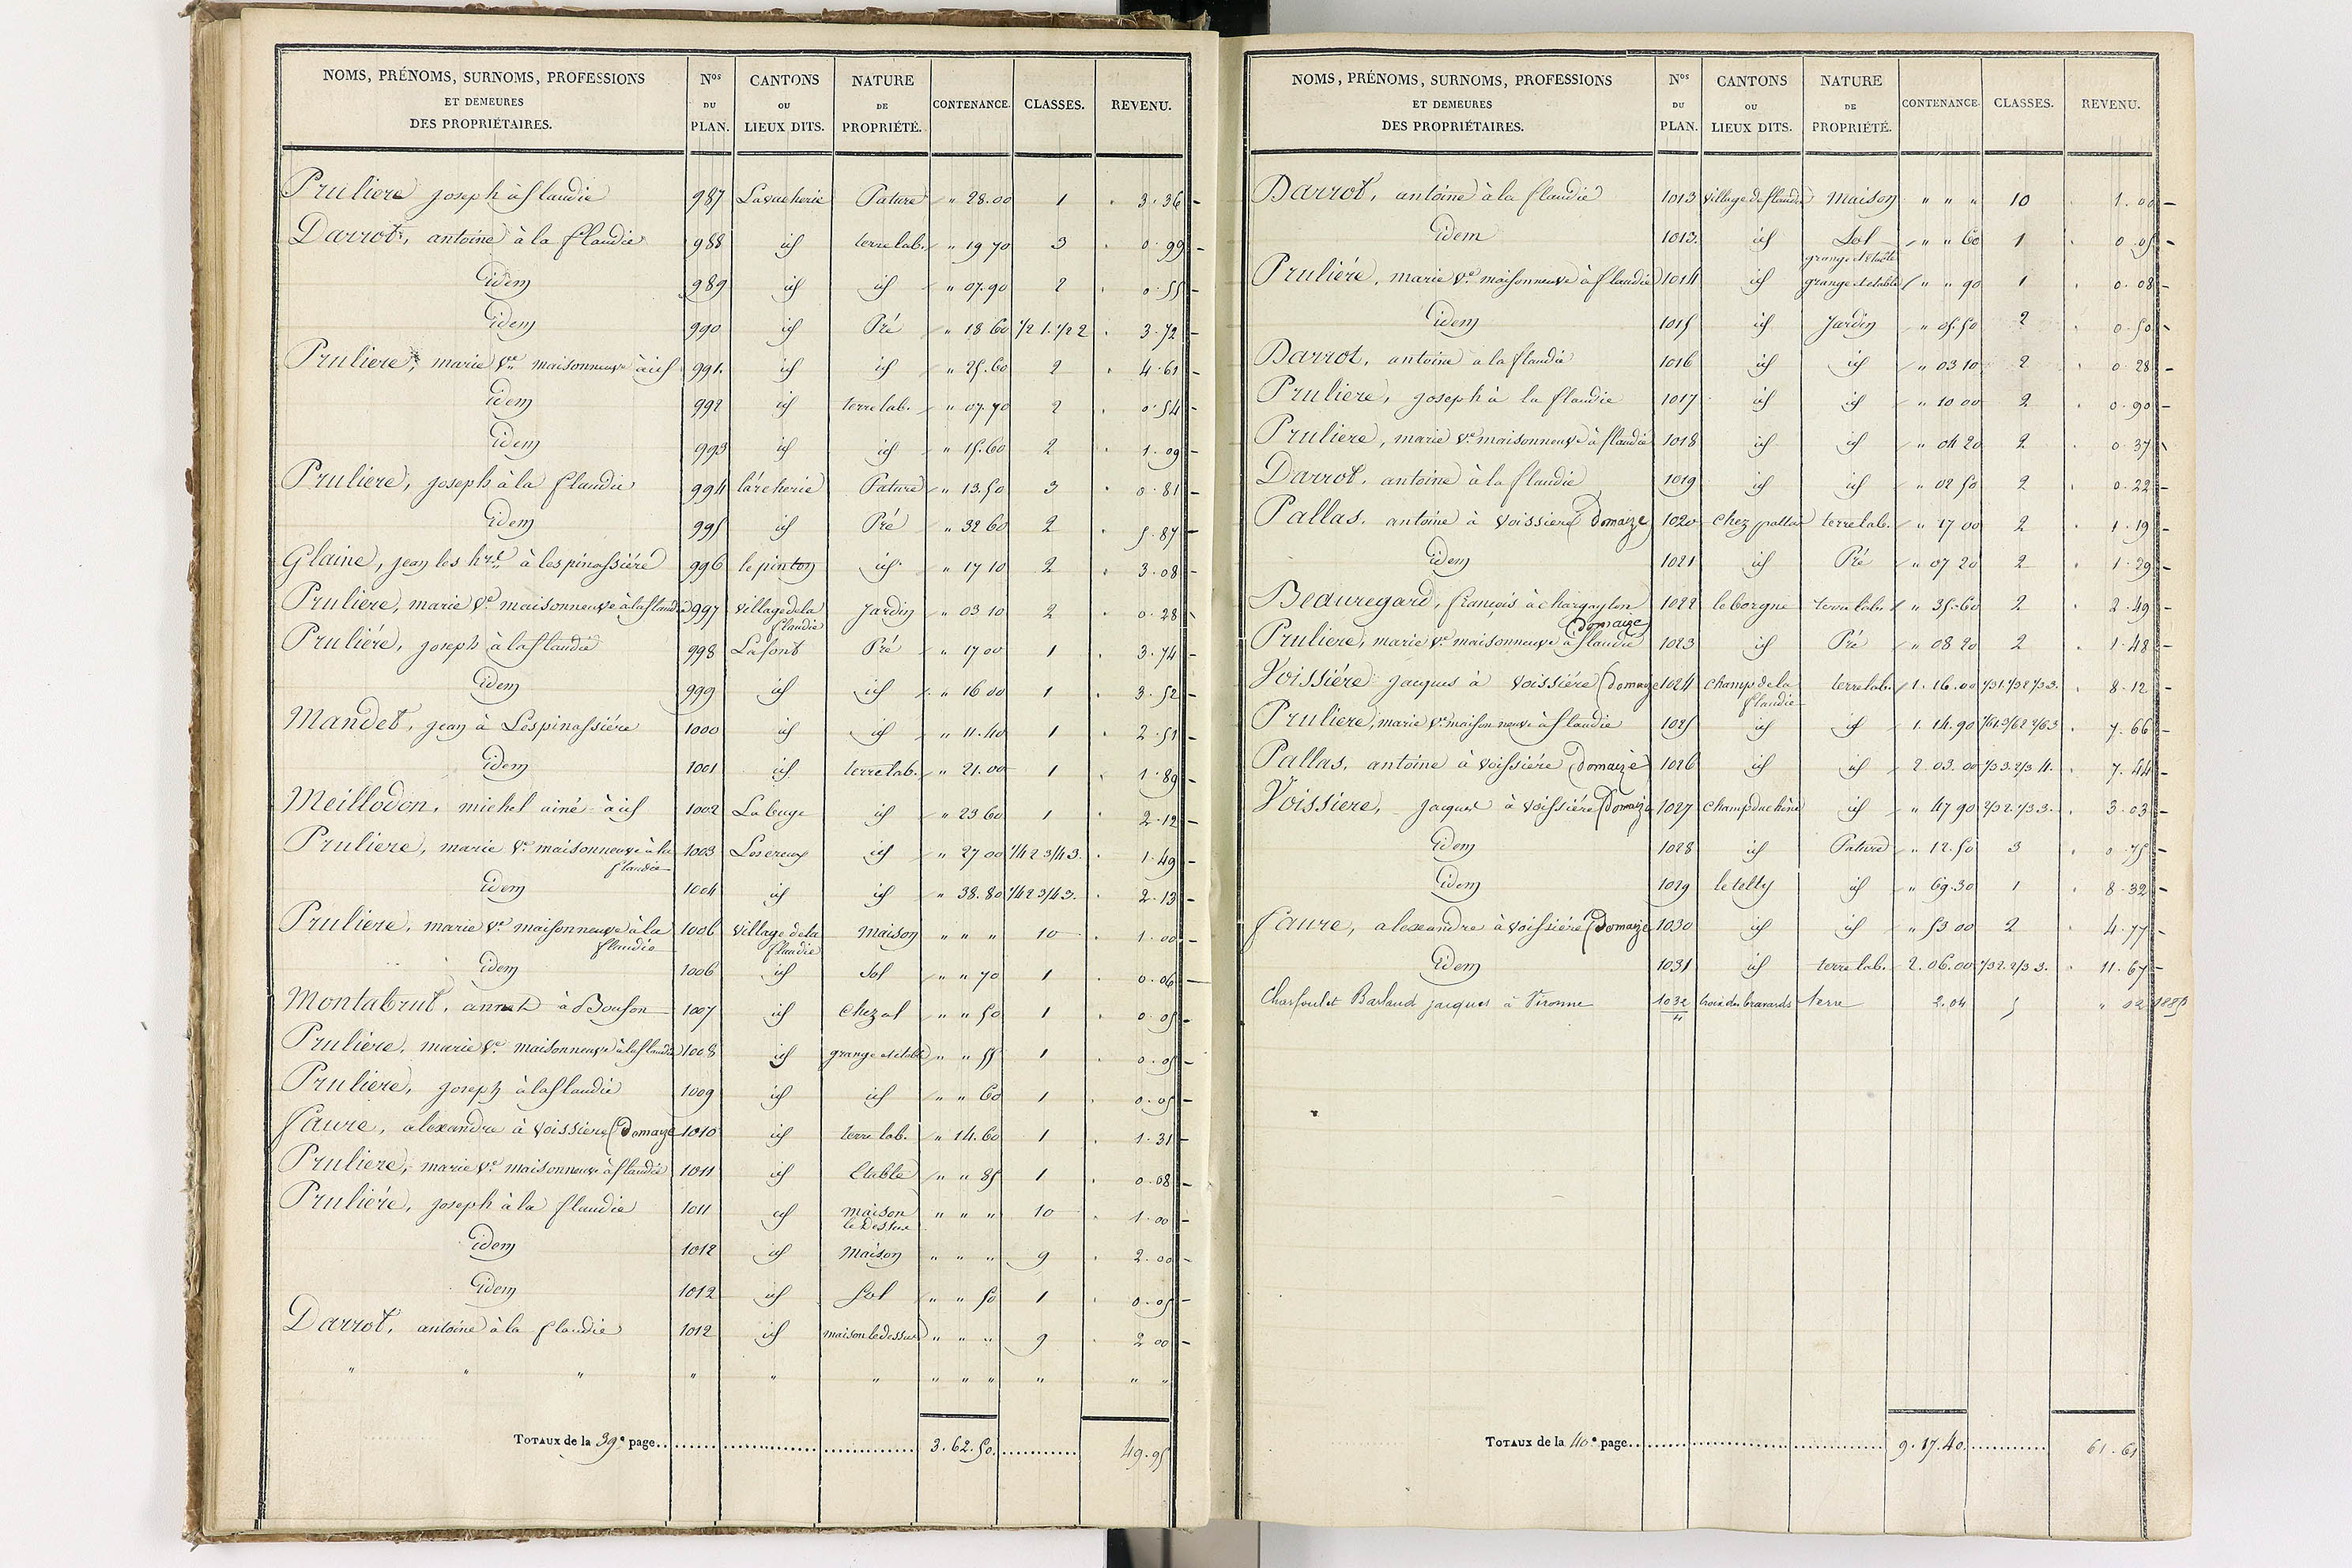 NOMS, PRÉNOMS, SURNOMS, PROFESSIONS ET DEMEURES DES PROPRIÉTAIRES. Nos DU PLAN. CANTONS OU LIEUX DITS. NATURE DE PROPRIÉTÉ. CONTENANCE. CLASSES. REVENU.
Pruliere joseph à flaudie 987 Pature " 28.00 1 3.36
Darrot, antoine à la flaudie 988 id terre lab. " 19 70 3 0.99
Idem 989 id id " 07.90 2 0.55
Idem 990 id Pré " 18 60 1/2 1. 1/2 2 3.72
Pruliere, marie Ve maisonneuve à id 991. id id " 25.60 2 4.61
Idem 992 id terre lab. " 07.70 2 0.54
Idem 993 id id " 15.60 2 1.09
Pruliere, joseph à la flaudie 994 Pature " 13.50 3 0.81
Idem 995 id Pré " 32 60 2 5.87
Glaine, jean les hrs à lespinassiére 996 le pinton id " 17 10 2 3.08
Pruliere, marie Ve maisonneuve à la flaudie 997 village de la flaudie Jardin " 03 10 2 0.28
Pruliére, joseph à la flaudie 998 Lafont Pré " 17 00 1 3.74
Idem 999 id id " 16 00 1 3.52
Mandet, jean à Lespinassiére 1000 id id " 11.40 1 2.51
Idem 1001 id terre lab. " 21.00 1 1.89
Meillodon, michel ainé à id 1002 La buge id " 23 60 1 2.12
Pruliere, marie Ve maisonneuve à la flaudie 1003 Loscreux id " 27 00 1/4 2 3/4 3. 1.49
Idem 1004 id id " 38.80 1/4 2 3/4 3. 2.13
Pruliere, marie Ve maisonneuve à la flaudie 1006 village de la flaudie maison " " " 10 1.00
Idem 1006 id Sol " " 70 1 0.06
Montabrut, annet à Bouson 1007 id Chezal " " 50 1 0.05
Pruliére, marie Ve maisonneuve à la flaudie 1008 id grange et etable " " 55 1 0.05
Pruliere, joseph à la flaudie 1009 id id " " 60 1 0.05
faure, alexandre à voissiere (Domaize 1010 id terre lab. " 14.60 1 1.31
Pruliere, marie Ve maisonneuve à flaudie 1011 id Etable " " 85 1 0.08
Pruliére, joseph à la flaudie 1011 id maison le dessus " " " 10 1.00
Idem 1012 id Maison " " " 9 2.00
Idem 1012 id Sol " " 50 1 0.05
Darrot, antoine à la flaudie 1012 id maison le dessus " " " 9 2 00
" " " " " " " " " " " "
TOTAUX de la 39e page 3.62.50. 49.95
NOMS, PRÉNOMS, SURNOMS, PROFESSIONS ET DEMEURES DES PROPRIÉTAIRES. Nos DU PLAN. CANTONS OU LIEUX DITS. NATURE DE PROPRIÉTÉ. CONTENANCE. CLASSES. REVENU.
Darrot, antoine à la flaudie 1013 village de flaudie Maison " " " 10 1.00
Idem 1013. id Sol " " 60 1 0.05
grange et etable
Pruliére, marie Ve maisonneuve à flaudie 1014 id grange et etable " " 90 1 0.08
Idem 1015 id Jardin " 05.50 2 0.50
Darrot, antoine a la flaudie 1016 id id " 03 10 2 0.28
Pruliere, joseph à la flaudie 1017 id id " 10 00 2 0.90
Pruliere, marie Ve maisonneuve à flaudie 1018 id id " 04 20 2 0.37
Darrot, antoine à la flaudie 1019 id id " 02 50 2 0.22
Pallas, antoine à voissiere (Domaize 1020 Chez pallas terre lab. " 17 00 2 1.19
Idem 1021 id Pré " 07 20 2 1.29
Beauregard, françois à chargnyton Domaize 1022 le borgne terre lab. " 35.60 2 2.49
Pruliere, marie Ve maisonneuve à flaudie 1023 id Pré " 08 20 2 1.48
Voissiére jacques à voissiére (Domaize 1024 champ de la flaudie terre lab. 1.16.00 1/3 1. 1/3 2 1/3 3. 8.12
Pruliere, marie Ve maison neuve à flaudie 1025 id id 1.14.90 1/6 1. 3/6 2 2/6 3 7.66
Pallas, antoine à voissiére (Domaize 1026 id id 2.03.00 1/3 3. 2/3 4. 7.44
Voissiere, jacques à voissiére (Domaize 1027 Champ du chêne id " 47 90 2/3 2. 1/3 3. 3.03
Idem 1028 id Pature " 12.50 3 0.75
Idem 1029 le telly id " 69.30 1 8.32
faure, alexandre à voissiére (Domaize 1030 id id " 53 00 2 4.77
Idem 1031 id terre lab. 2.06.00 1/3 2. 2/3 3. 11.67
Charfoulet Barlaud jacques à Vironne 1032 croix des bravards terre 2.04 5 " 02 1885
TOTAUX de la 40e page 9.17.40. 61.61